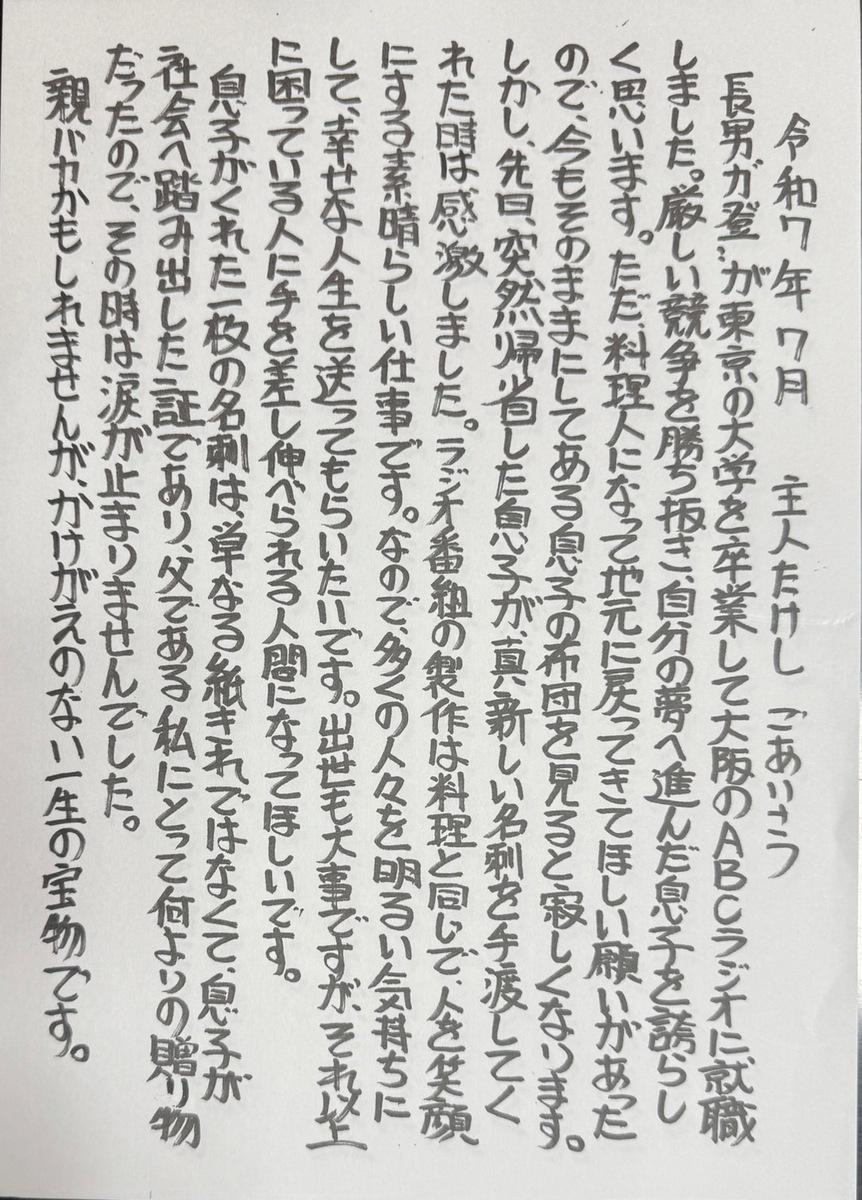 令和7年7月 主人たけし ごあいさつ
長男が登…が東京の大学を卒業して大阪のABCラジオに就職
しました。厳しい競争を勝ち抜き、自分の夢へ進んだ息子を誇らし
く思います。ただ、料理人になって地元に戻ってきてほしい願いがあった
ので、今もそのままにしてある息子の布団を見ると寂しくなります。
しかし、先日、突然帰省した息子が、真新しい名刺を手渡してく
れた時は感激しました。ラジオ番組の製作は料理と同じで、人を笑顔
にする素晴らしい仕事です。なので、多くの人々を明るい気持ちに
して、幸せな人生を送ってもらいたいです。出世も大事ですが、それ以上
に困っている人に手を差し伸べられる人間になってほしいです。
息子がくれた一枚の名刺は、単なる紙きれではなくて、息子が
社会へ踏み出した証であり、父である私にとって何よりの贈り物
だったので、その時は涙が止まりませんでした。
親バカかもしれませんが、かけがえのない一生の宝物です。